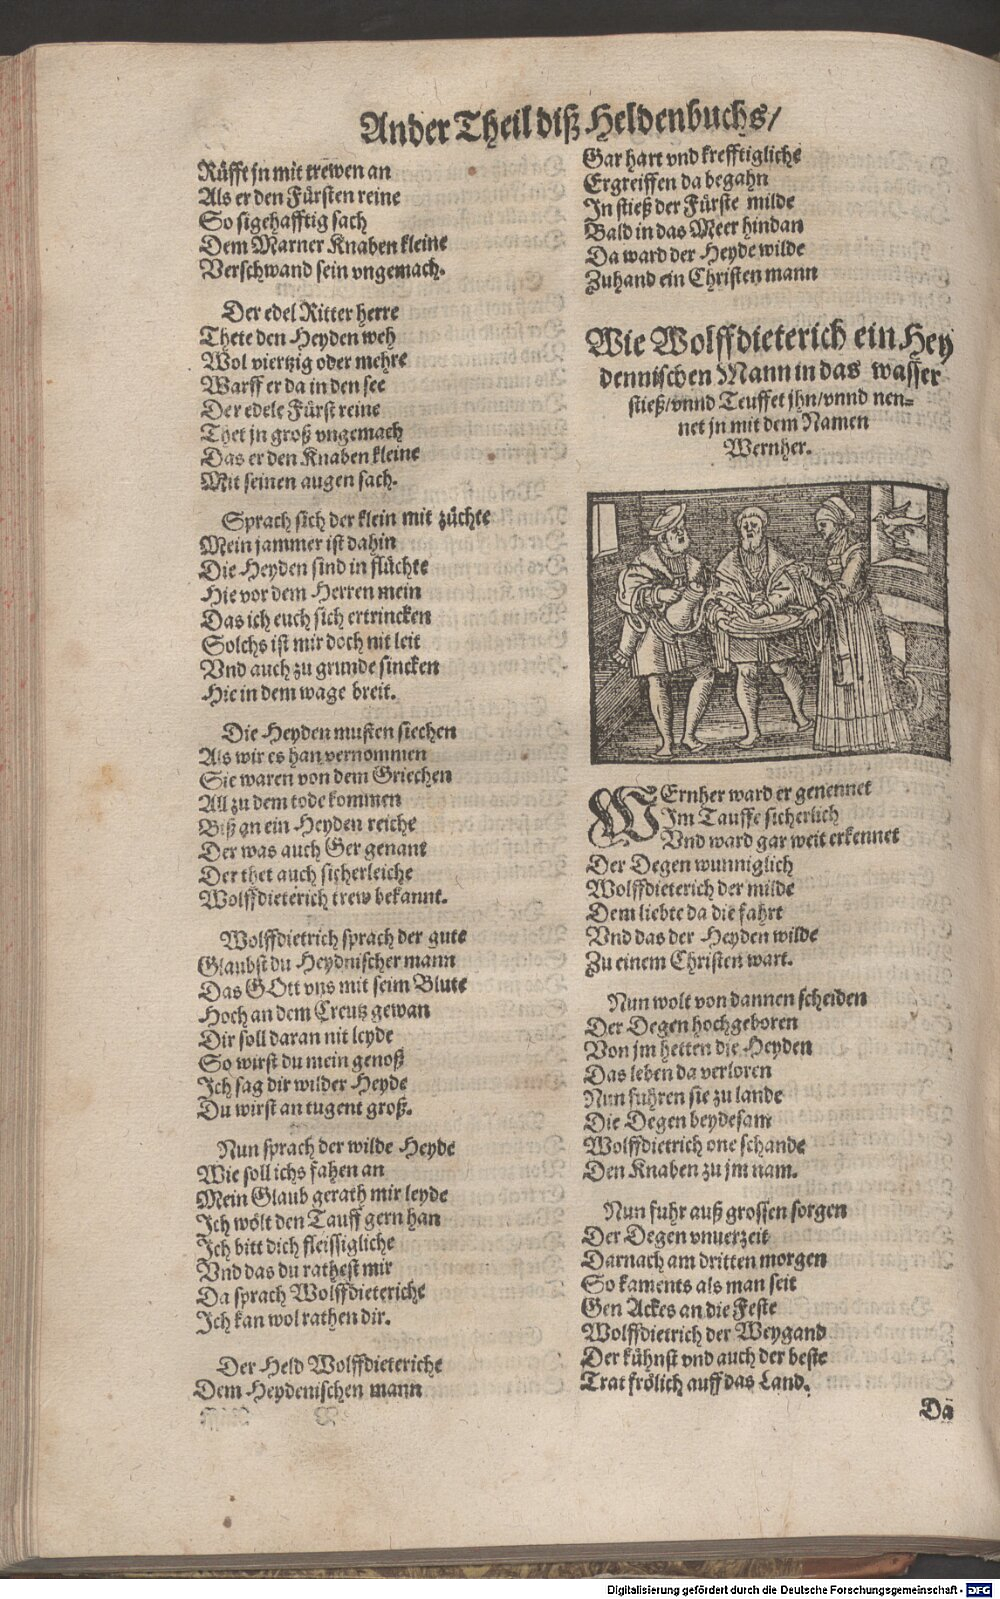 Ander Theil diß Heldenbuchs/
Rüfft jn mit trewen an
Als er den Fürsten reine
So sigehafftig sach
Dem Marner Knaben kleine
Verschwand sein vngemach.
Der edel Ritter herre
Thete den Heyden weh
Wol viertzig oder mehre
Warff er da in den see
Der edele Fürst reine
Thet jn groß vngemach
Das er den Knaben kleine
Mit seinen augen sach.
Sprach sich der klein mit züchte
Mein jammer ist dahin
Die Heyden sind in flüchte
Hie vor dem Herren mein
Das ich euch sich ertrincken
Solchs ist mir doch nit leit
Vnd auch zu grunde sincken
Hie in dem wage breit.
Die Heyden musten siechen
Als wir es han vernommen
Sie waren von dem Griechen
All zu dem tode kommen
Biß an ein Heyden reiche
Der was auch Ger genant
Der thet auch sicherleiche
Wolffdieterich trew bekannt.
Wolffdietrich sprach der gute
Glaubst du Heydnischer mann
Das GOtt vns mit seim Blute
Hoch an dem Creutz gewan
Dir soll daran nit leyde
So wirst du mein genoß
Ich sag dir wilder Heyde
Du wirst an tugent groß.
Nun sprach der wilde Heyde
Wie soll ichs fahen an
Mein Glaub gerath mir leyde
Ich wölt den Tauff gern han
Ich bitt dich fleissigliche
Vnd das du rathest mir
Da sprach Wolffdieteriche
Ich kan wol rathen dir.
Der Held Wolffdieteriche
Dem Heydenischen mann
Gar hart vnd krefftigliche
Ergreiffen da begahn
In stieß der Fürste milde
Bald in das Meer hindan
Da ward der Heyde wilde
Zuhand ein Christen mann
Wie Wolffdieterich ein Hey
dennischen Mann in das wasser
stieß/vnnd Teuffet jhn/vnnd nen=
net jn mit dem Namen
Wernher.
WErnher ward er genennet
Im Tauffe sicherlich
Vnd ward gar weit erkennet
Der Degen wunniglich
Wolffdieterich der milde
Dem liebte da die fahrt
Vnd das der Heyden wilde
Zu einem Christen wart.
Nun wolt von dannen scheiden
Der Degen hochgeboren
Von jm hetten die Heyden
Das leben da verloren
Nun fuhren sie zu lande
Die Degen beydesam
Wolffdietrich one schande
Den Knaben zu jm nam.
Nun fuhr auß grossen sorgen
Der Degen vnuerzeit
Darnach am dritten morgen
So kaments als man seit
Gen Ackes an die Feste
Wolffdietrich der Weygand
Der kühnst vnd auch der beste
Trat frölich auff das Land.
Da
Digitalisierung gefördert durch die Deutsche Forschungsgemeinschaft - DFG